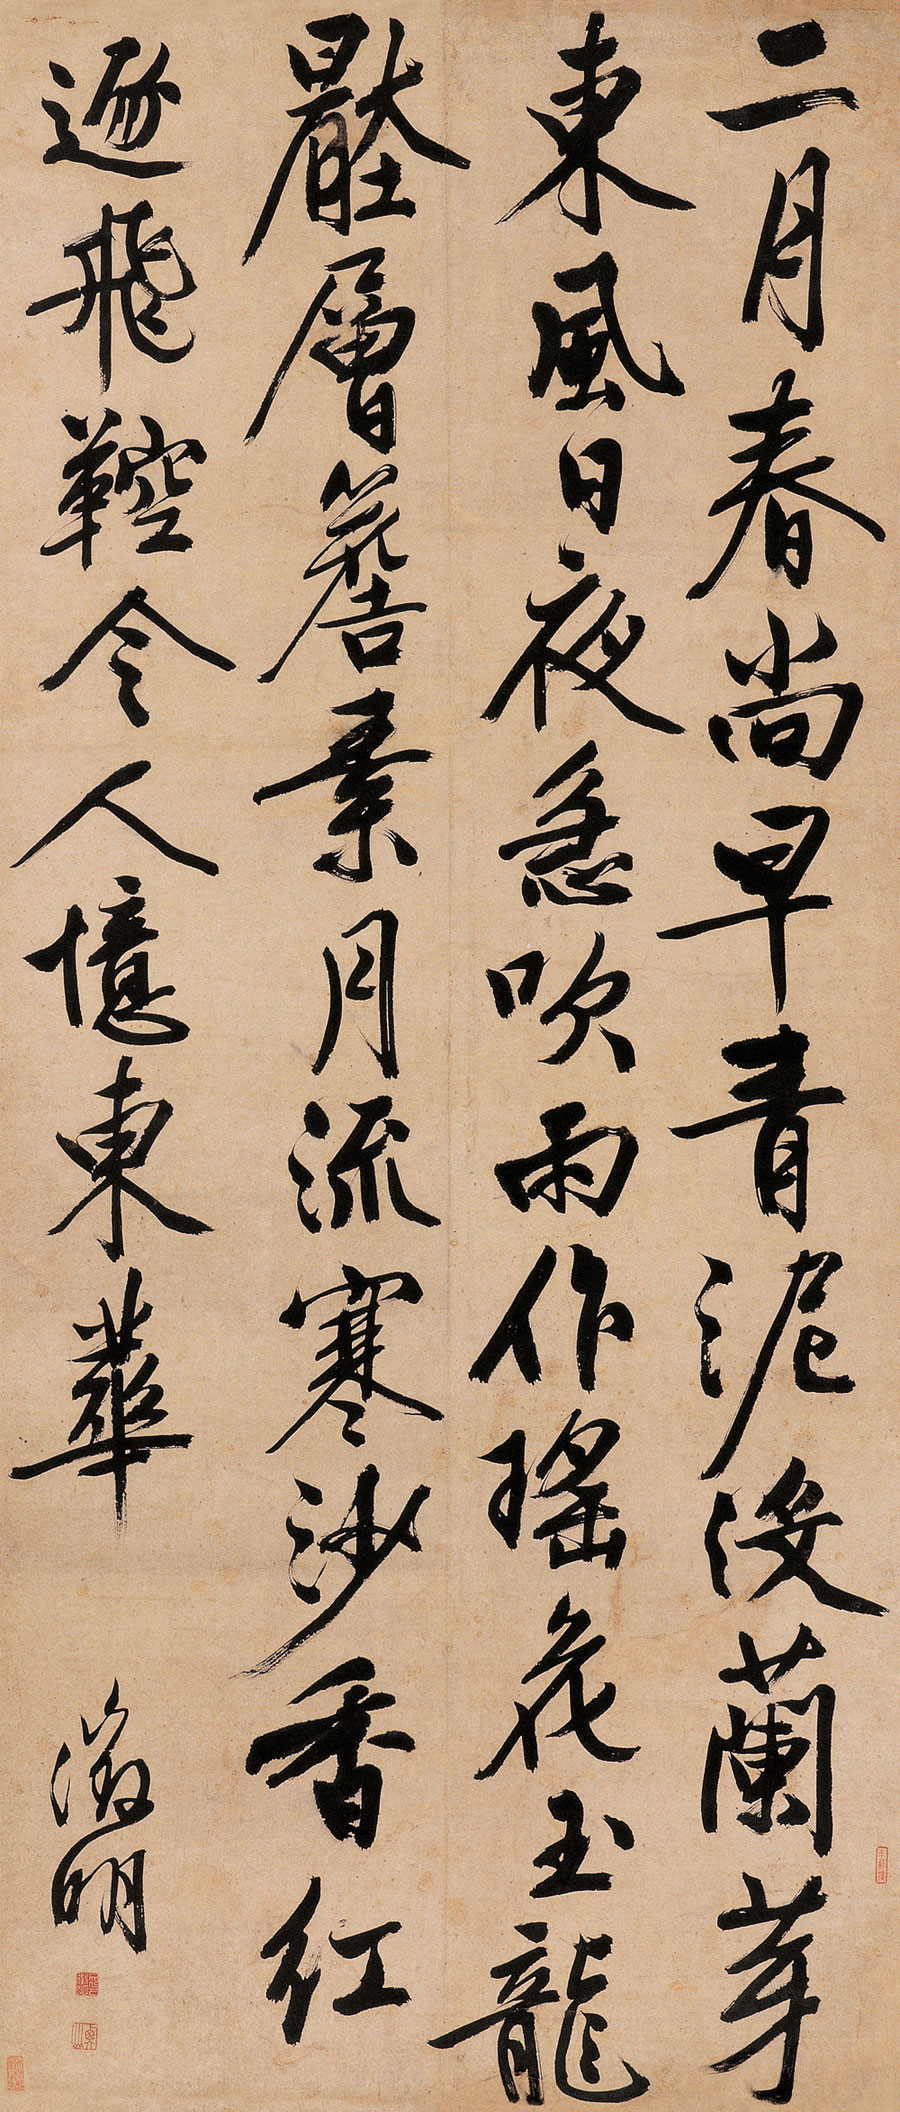 二月春尚早青泥沒蘭芽
東風日夜急吹雨作瑤花玉龍
壓層簷素月流寒沙香紅
逐飛鞚令人憶東華
徵明